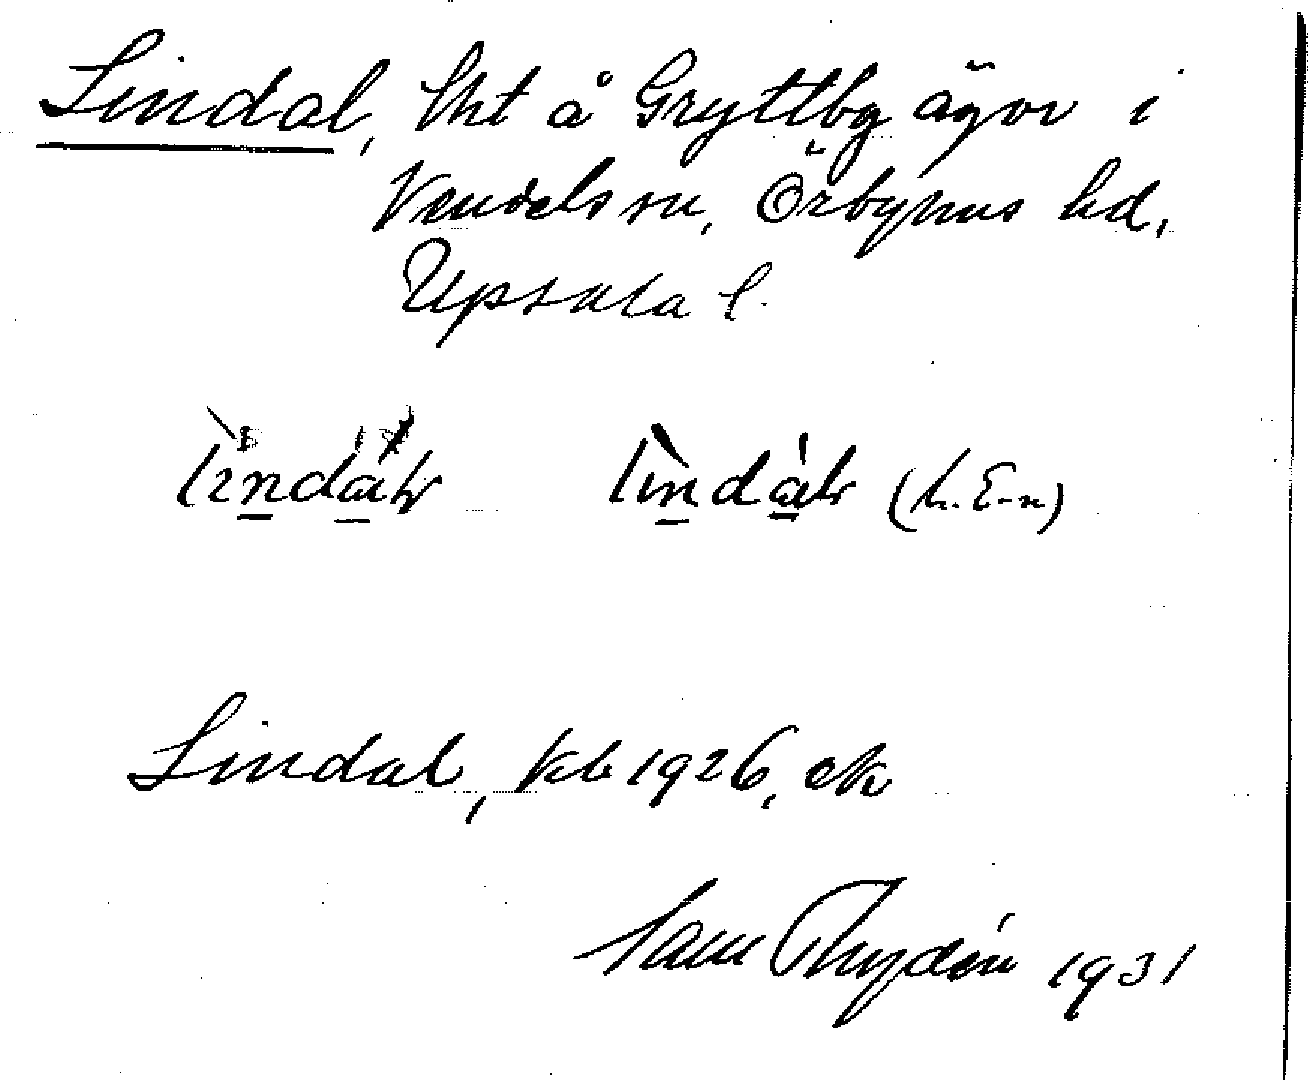 Lindal, lht å Gryttbg ägor i
Vendels sn, Örbyhus hd,
Upsala l.
lìndál lìndàl (L. E-n)
Lindal, kb 1926, ek
Sam Thydén 1931